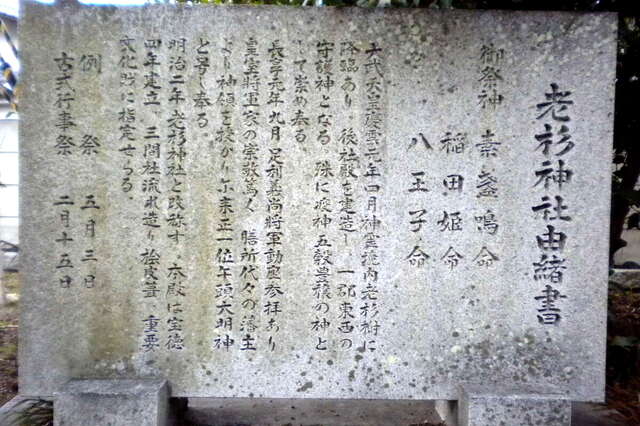 老杉神社由緒書
御祭神 素盞鳴命
稲田姫命
八王子命
天武天皇白雲元年四月神霊境内老杉樹に
降臨あり 後社殿を建造し 一郡東西の
守護神となる 殊に疫神五穀豊穣の神と
して崇め奉る
長享元年九月 足利義尚将軍動座参拝あり
皇室将軍家の崇敬篤く 膳所代々の藩主
より神領を授かり 正一位牛頭天明神
と号し奉る。
明治二年老杉神社と改称す。本殿は宝徳
四年建立、三間社流れ造り桧皮葺 重要
文化財に指定せらる。
例祭 五月三日
古式行事祭 二月十五日